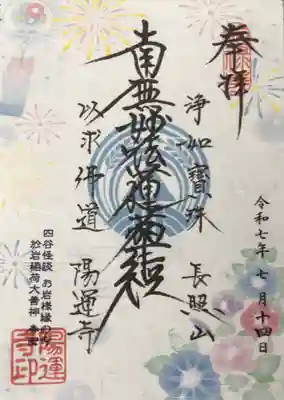 奉拝
浄如寶珠 長照山
南無妙法蓮華経
以求佛道 陽運寺
令和七年七月十四日
四谷怪談 お岩様縁の寺
於岩稲荷大善神
陽運寺印